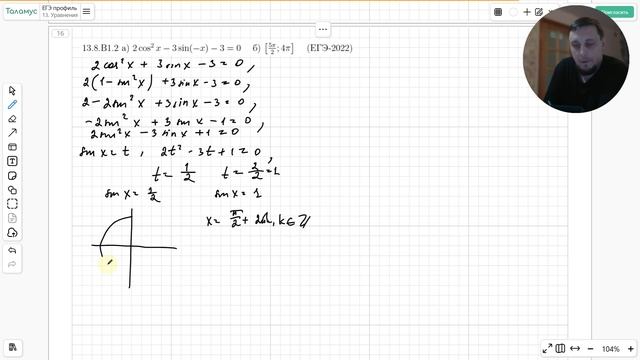 Таламус
ЕГЭ профиль
13. Уравнения
16
13.8.B1.2 а) 2 cos² x − 3 sin(−x) − 3 = 0 б) [5π/2; 4π] (ЕГЭ-2022)
2cos²x + 3sinx − 3 = 0,
2(1 − sin²x) + 3sinx − 3 = 0,
2 − 2sin²x + 3sinx − 3 = 0,
−2sin²x + 3sinx − 1 = 0,
2sin²x − 3sinx + 1 = 0,
sinx = t, 2t² − 3t + 1 = 0,
t = 1/2 t = 2/2 = 1
sinx = 1/2 sinx = 1
x = π/2 + 2πk, k ∈ ℤ
104%